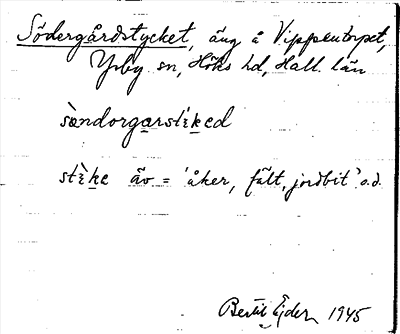 Södergårdstycket, äng å Vippentorpet,
Ysby sn, Höks hd, Hall. län
sø̀ndorgarstɛked
stɛ̀ke äv = 'åker, fält, jordbit' o.d.
Bertil Ejder 1945